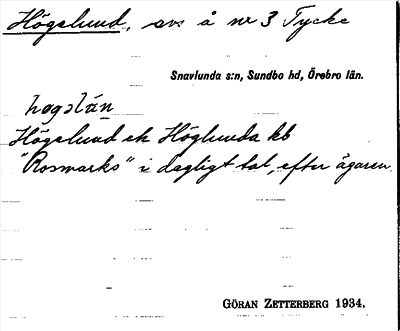 Högslund, avs å nr 3 Tycke
Snavlunda s:n, Sundbo hd, Örebro län.
høgslún
Högslund ek Höglunda kb
"Rosmarks" i dagligt tal, efter ägaren.
GÖRAN ZETTERBERG 1934.